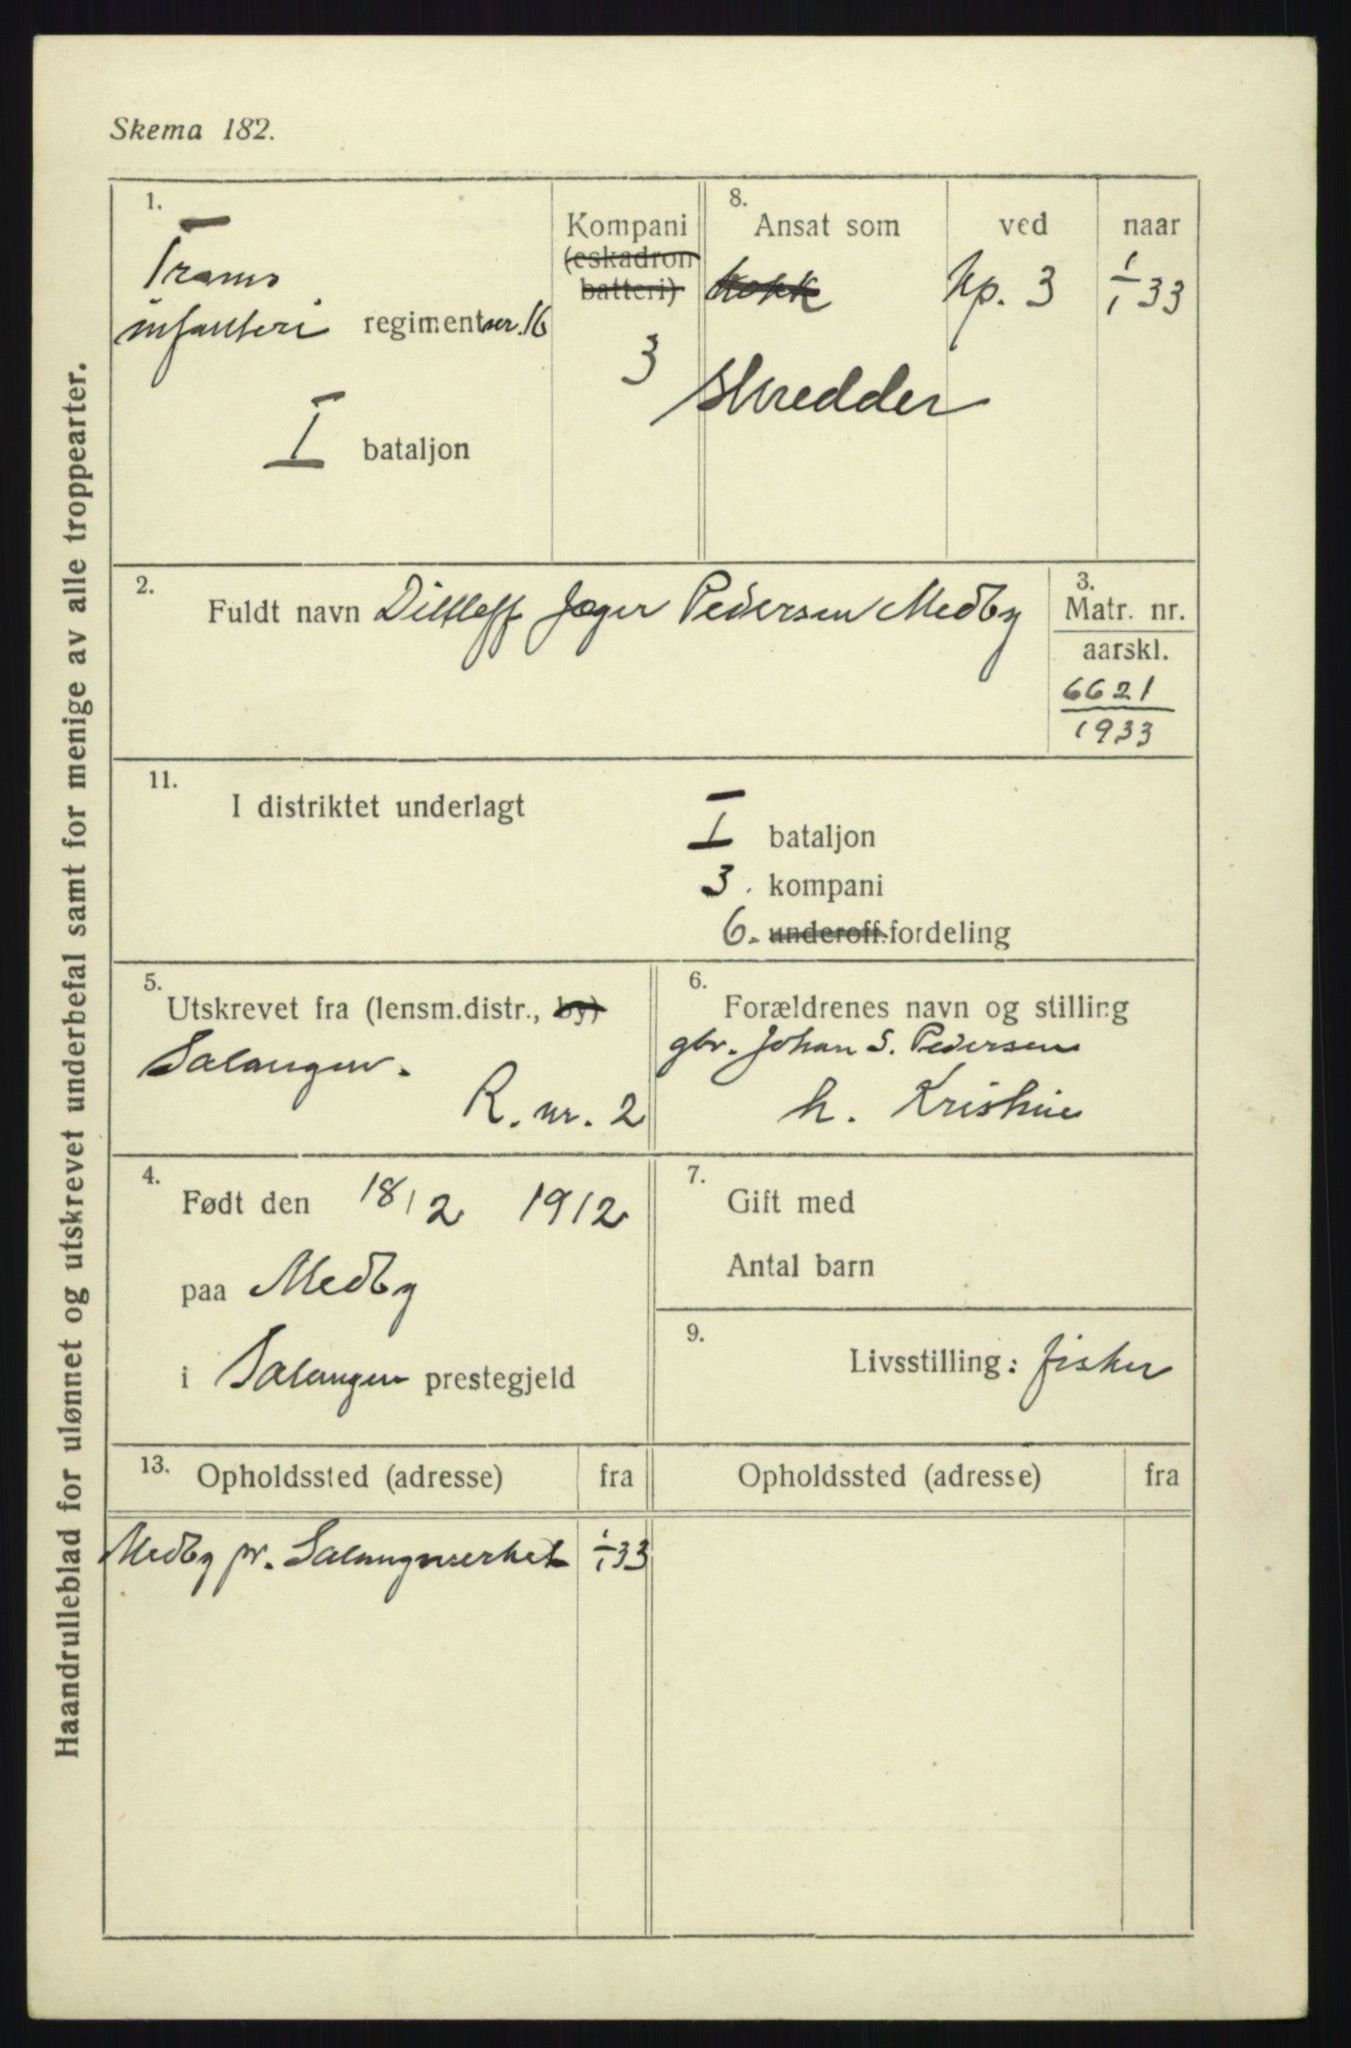 Skema 182.
Haandrulleblad for ulønnet og utskrevet underbefal samt for menige av alle troppearter.
1.
Troms
infanteri regiment nr. 16
I bataljon
Kompani
(eskadron
batteri)
3
8.
Ansat som ved naar
kokk Kp. 3 1/1 33
skredder
2.
Fuldt navn Ditleff Jæger Pedersen Medby
3.
Matr. nr.
aarskl.
6621
1933
11.
I distriktet underlagt
I bataljon
3. kompani
6. underoff.fordeling
5.
Utskrevet fra (lensm.distr., by)
Salangen.
R. nr. 2
6.
Forældrenes navn og stilling
gbr. Johan S. Pedersen
h. Kristine
4.
Født den 18/2 1912
paa Medby
i Salangen prestegjeld
7.
Gift med
Antal barn
9.
Livsstilling: fisker
13.
Opholdssted (adresse) fra Opholdssted (adresse) fra
Medby pr. Salangsverket 1/1 33